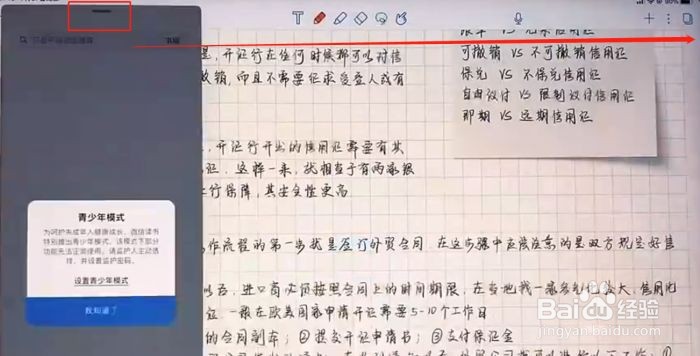 可撤销 VS 不可撤销信用证
保兑 VS 不保兑信用证
自由议付 VS 限制议付信用证
即期 VS 远期信用证
是,开证行在任何时候都可以对信
撤销,而且不需要征求受益人或有
,开证行开出的信用证需要有其
证.这样一来,就相当于有两家银
行保障,其安全性更高
青少年模式
为呵护未成年人健康成长,微信读书
特别推出青少年模式,该模式下部分
功能无法正常使用。请监护人主动选
择,并设置监护密码。
设置青少年模式
我知道了
作流程的第一步就是签订外贸合同.在这步骤中应该注意的是双方规定好信
以后,进口商必须按照合同上的时间期限,在当地找一家
证.一般在欧美国家申请开证需要5-10个工作日
的合同副本;②提交开证申请书;③支付保证金
Baidu 经验
jingyan.baidu.com